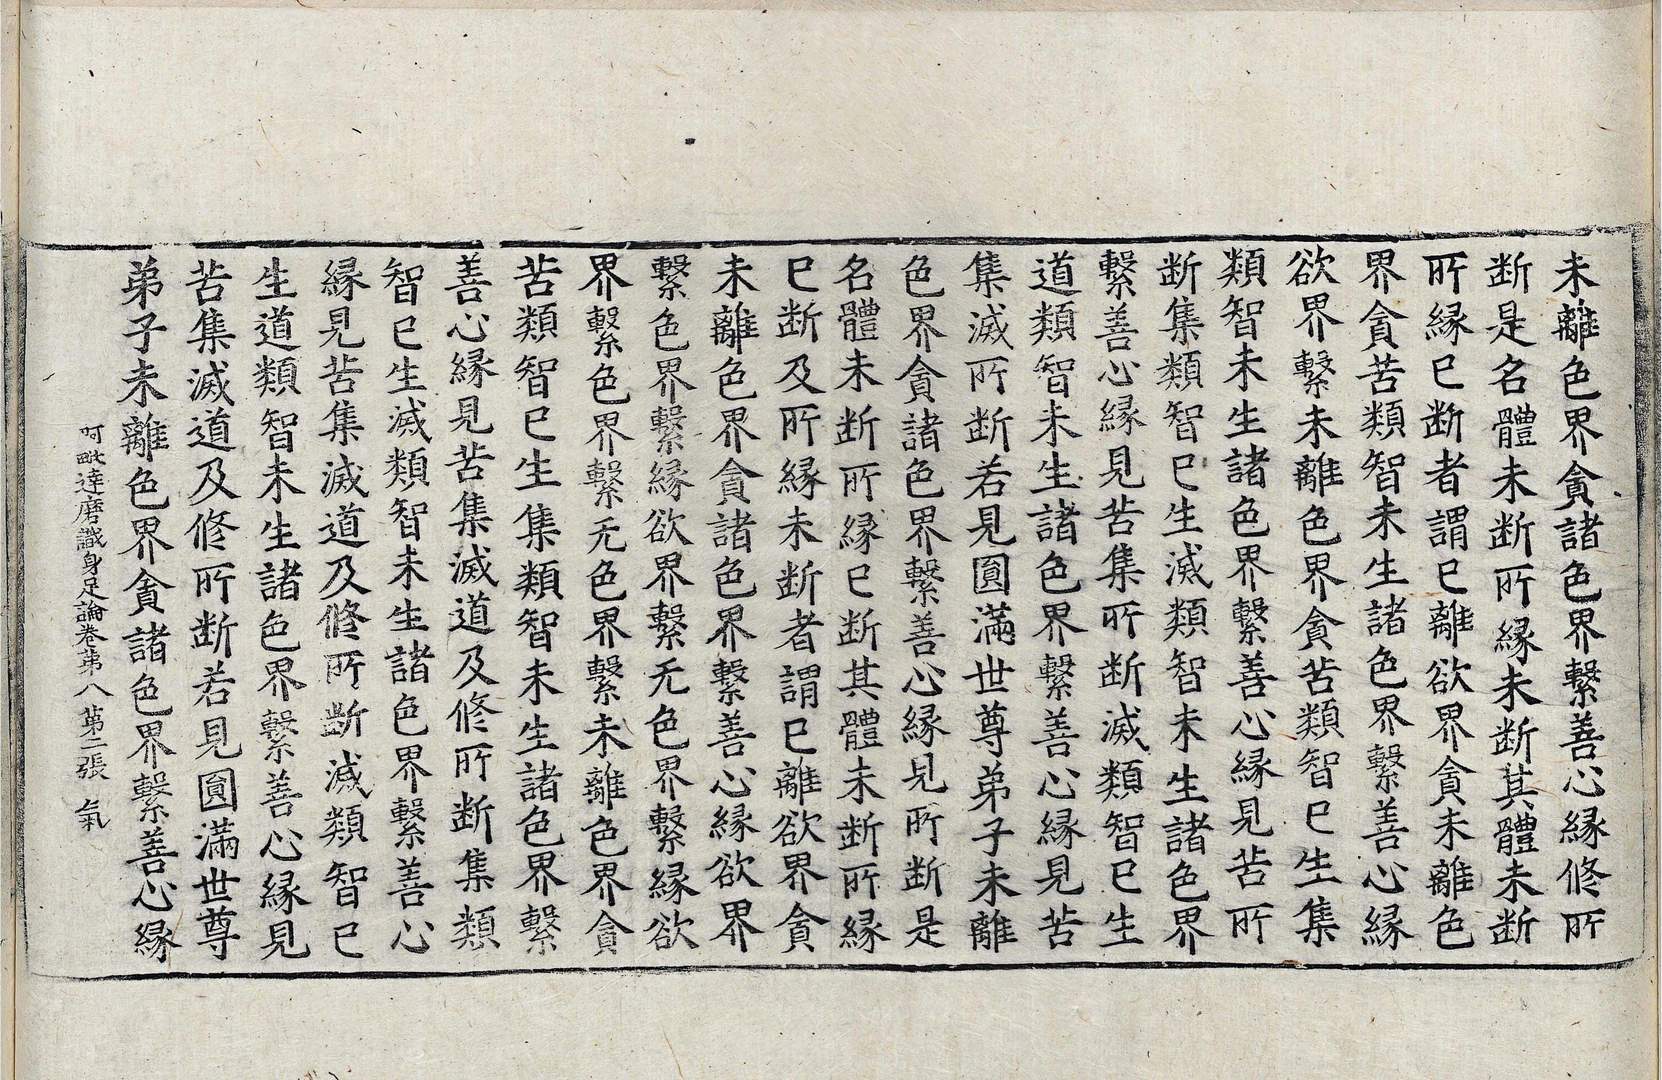 未離色界貪諸色界繫善心縁修所
断是名體未断所縁未断其體未断
所縁已断者謂已離欲界貪未離色
界貪苦類智未生諸色界繫善心縁
欲界繫未離色界貪苦類智已生集
類智未生諸色界繫善心縁見苦所
断集類智已生滅類智未生諸色界
繫善心縁見苦集所断滅類智已生
道類智未生諸色界繫善心縁見苦
集滅所断若見圓滿世尊弟子未離
色界貪諸色界繫善心縁見所断是
名體未断所縁已断其體未断所縁
已断及所縁未断者謂已離欲界貪
未離色界貪諸色界繫善心縁欲界
繫色界繫縁欲界繫无色界繫縁欲
界繫色界繫无色界繫未離色界貪
苦類智已生集類智未生諸色界繫
善心縁見苦集滅道及修所断集類
智已生滅類智未生諸色界繫善心
縁見苦集滅道及修所断滅類智已
生道類智未生諸色界繫善心縁見
苦集滅道及修所断若見圓滿世尊
弟子未離色界貪諸色界繫善心縁
阿毗達磨識身足論卷第八 第二張 氣